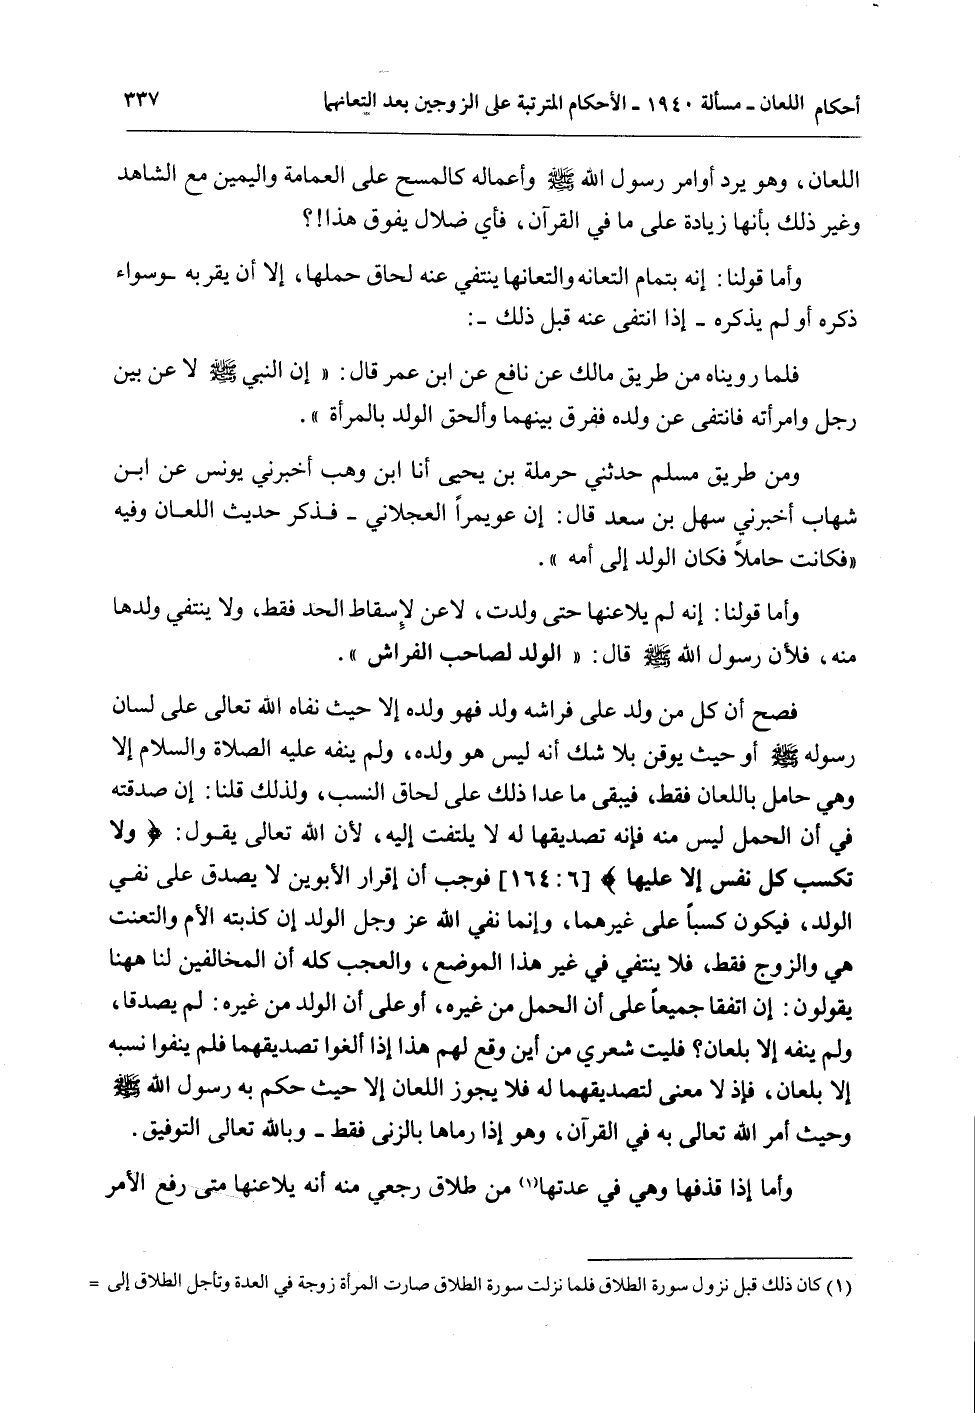 أحكام اللعان ـ مسألة ١٩٤٠ ـ الأحكام المترتبة على الزوجين بعد التعانهما ٣٣٧
اللعان، وهو يرد أوامر رسول الله ﷺ وأعماله كالمسح على العمامة واليمين مع الشاهد
وغير ذلك بأنها زيادة على ما في القرآن، فأي ضلال يفوق هذا!؟
وأما قولنا: إنه بتمام التعانه والتعانها ينتفي عنه لحاق حملها، إلا أن يقربه ـوسواء
ذكره أو لم يذكره ـ إذا انتفى عنه قبل ذلك ـ:
فلما رويناه من طريق مالك عن نافع عن ابن عمر قال: « إن النبي ﷺ لا عن بين
رجل وامرأته فانتفى عن ولده ففرق بينهما وألحق الولد بالمرأة ».
ومن طريق مسلم حدثني حرملة بن يحيى أنا ابن وهب أخبرني يونس عن ابـن
شهاب أخبرني سهل بن سعد قال: إن عويمراً العجلاني ـ فـذكر حديث اللعـان وفيه
«فكانت حاملاً فكان الولد إلى أمه ».
وأما قولنا: إنه لم يلاعنها حتى ولدت، لاعن لإسقاط الحد فقط، ولا ينتفي ولدها
منه، فلأن رسول الله ﷺ قال: « الولد لصاحب الفراش ».
فصح أن كل من ولد على فراشه ولد فهو ولده إلا حيث نفاه الله تعالى على لسان
رسوله ﷺ أو حيث يوقن بلا شك أنه ليس هو ولده، ولم ينفه عليه الصلاة والسلام إلا
وهي حامل باللعان فقط، فيبقى ما عدا ذلك على لحاق النسب، ولذلك قلنا: إن صدقته
في أن الحمل ليس منه فإنه تصديقها له لا يلتفت إليه، لأن الله تعالى يقـول: ﴿ ولا
تكسب كل نفس إلا عليها ﴾ [٦: ١٦٤] فوجب أن إقرار الأبوين لا يصدق على نفـي
الولد، فيكون كسباً على غيرهما، وإنما نفى الله عز وجل الولد إن كذبته الأم والتعنت
هي والزوج فقط، فلا ينتفي في غير هذا الموضع، والعجب كله أن المخالفين لنا ههنا
يقولون: إن اتفقا جميعاً على أن الحمل من غيره، أو على أن الولد من غيره: لم يصدقا،
ولم ينفه إلا بلعان؟ فليت شعري من أين وقع لهم هذا إذا ألغوا تصديقهما فلم ينفوا نسبه
إلا بلعان، فإذ لا معنى لتصديقهما له فلا يجوز اللعان إلا حيث حكم به رسول الله ﷺ
وحيث أمر الله تعالى به في القرآن، وهو إذا رماها بالزنى فقط ـ وبالله تعالى التوفيق.
وأما إذا قذفها وهي في عدتها(١) من طلاق رجعي منه أنه يلاعنها متى رفع الأمر
(١) كان ذلك قبل نزول سورة الطلاق فلما نزلت سورة الطلاق صارت المرأة زوجة في العدة وتأجل الطلاق إلى =